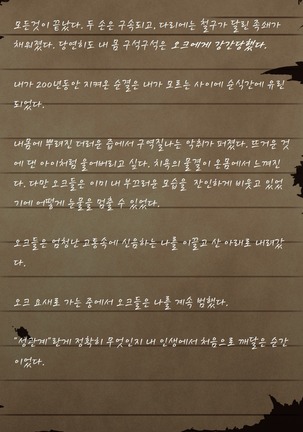 모든것이 끝났다. 두 손은 구속되고, 다리에는 철구가 달린 족쇄가
채워졌다. 당연히도 내 몸 구석구석은 오크에게 강간당했다.
내가 200년동안 지켜온 순결은 내가 모르는 사이에 순식간에 유린
되었다.
내몸에 뿌려진 더러운 즙에서 구역질나는 악취가 퍼졌다. 뜨거운 것
에 덴 아이처럼 울어버리고 싶다. 치욕의 물결이 온몸에서 느껴진
다. 다만 오크들은 이미 내 부끄러운 모습을 잔인하게 비웃고 있었
기에 어떻게 눈물을 멈출 수 있었다.
오크들은 엄청난 고통속에 신음하는 나를 이끌고 산 아래로 내려갔
다.
오크 요새로 가는 중에서 오크들은 나를 계속 범했다.
"성관계"란게 정확히 무엇인지 내 인생에서 처음으로 깨달은 순간
이었다.